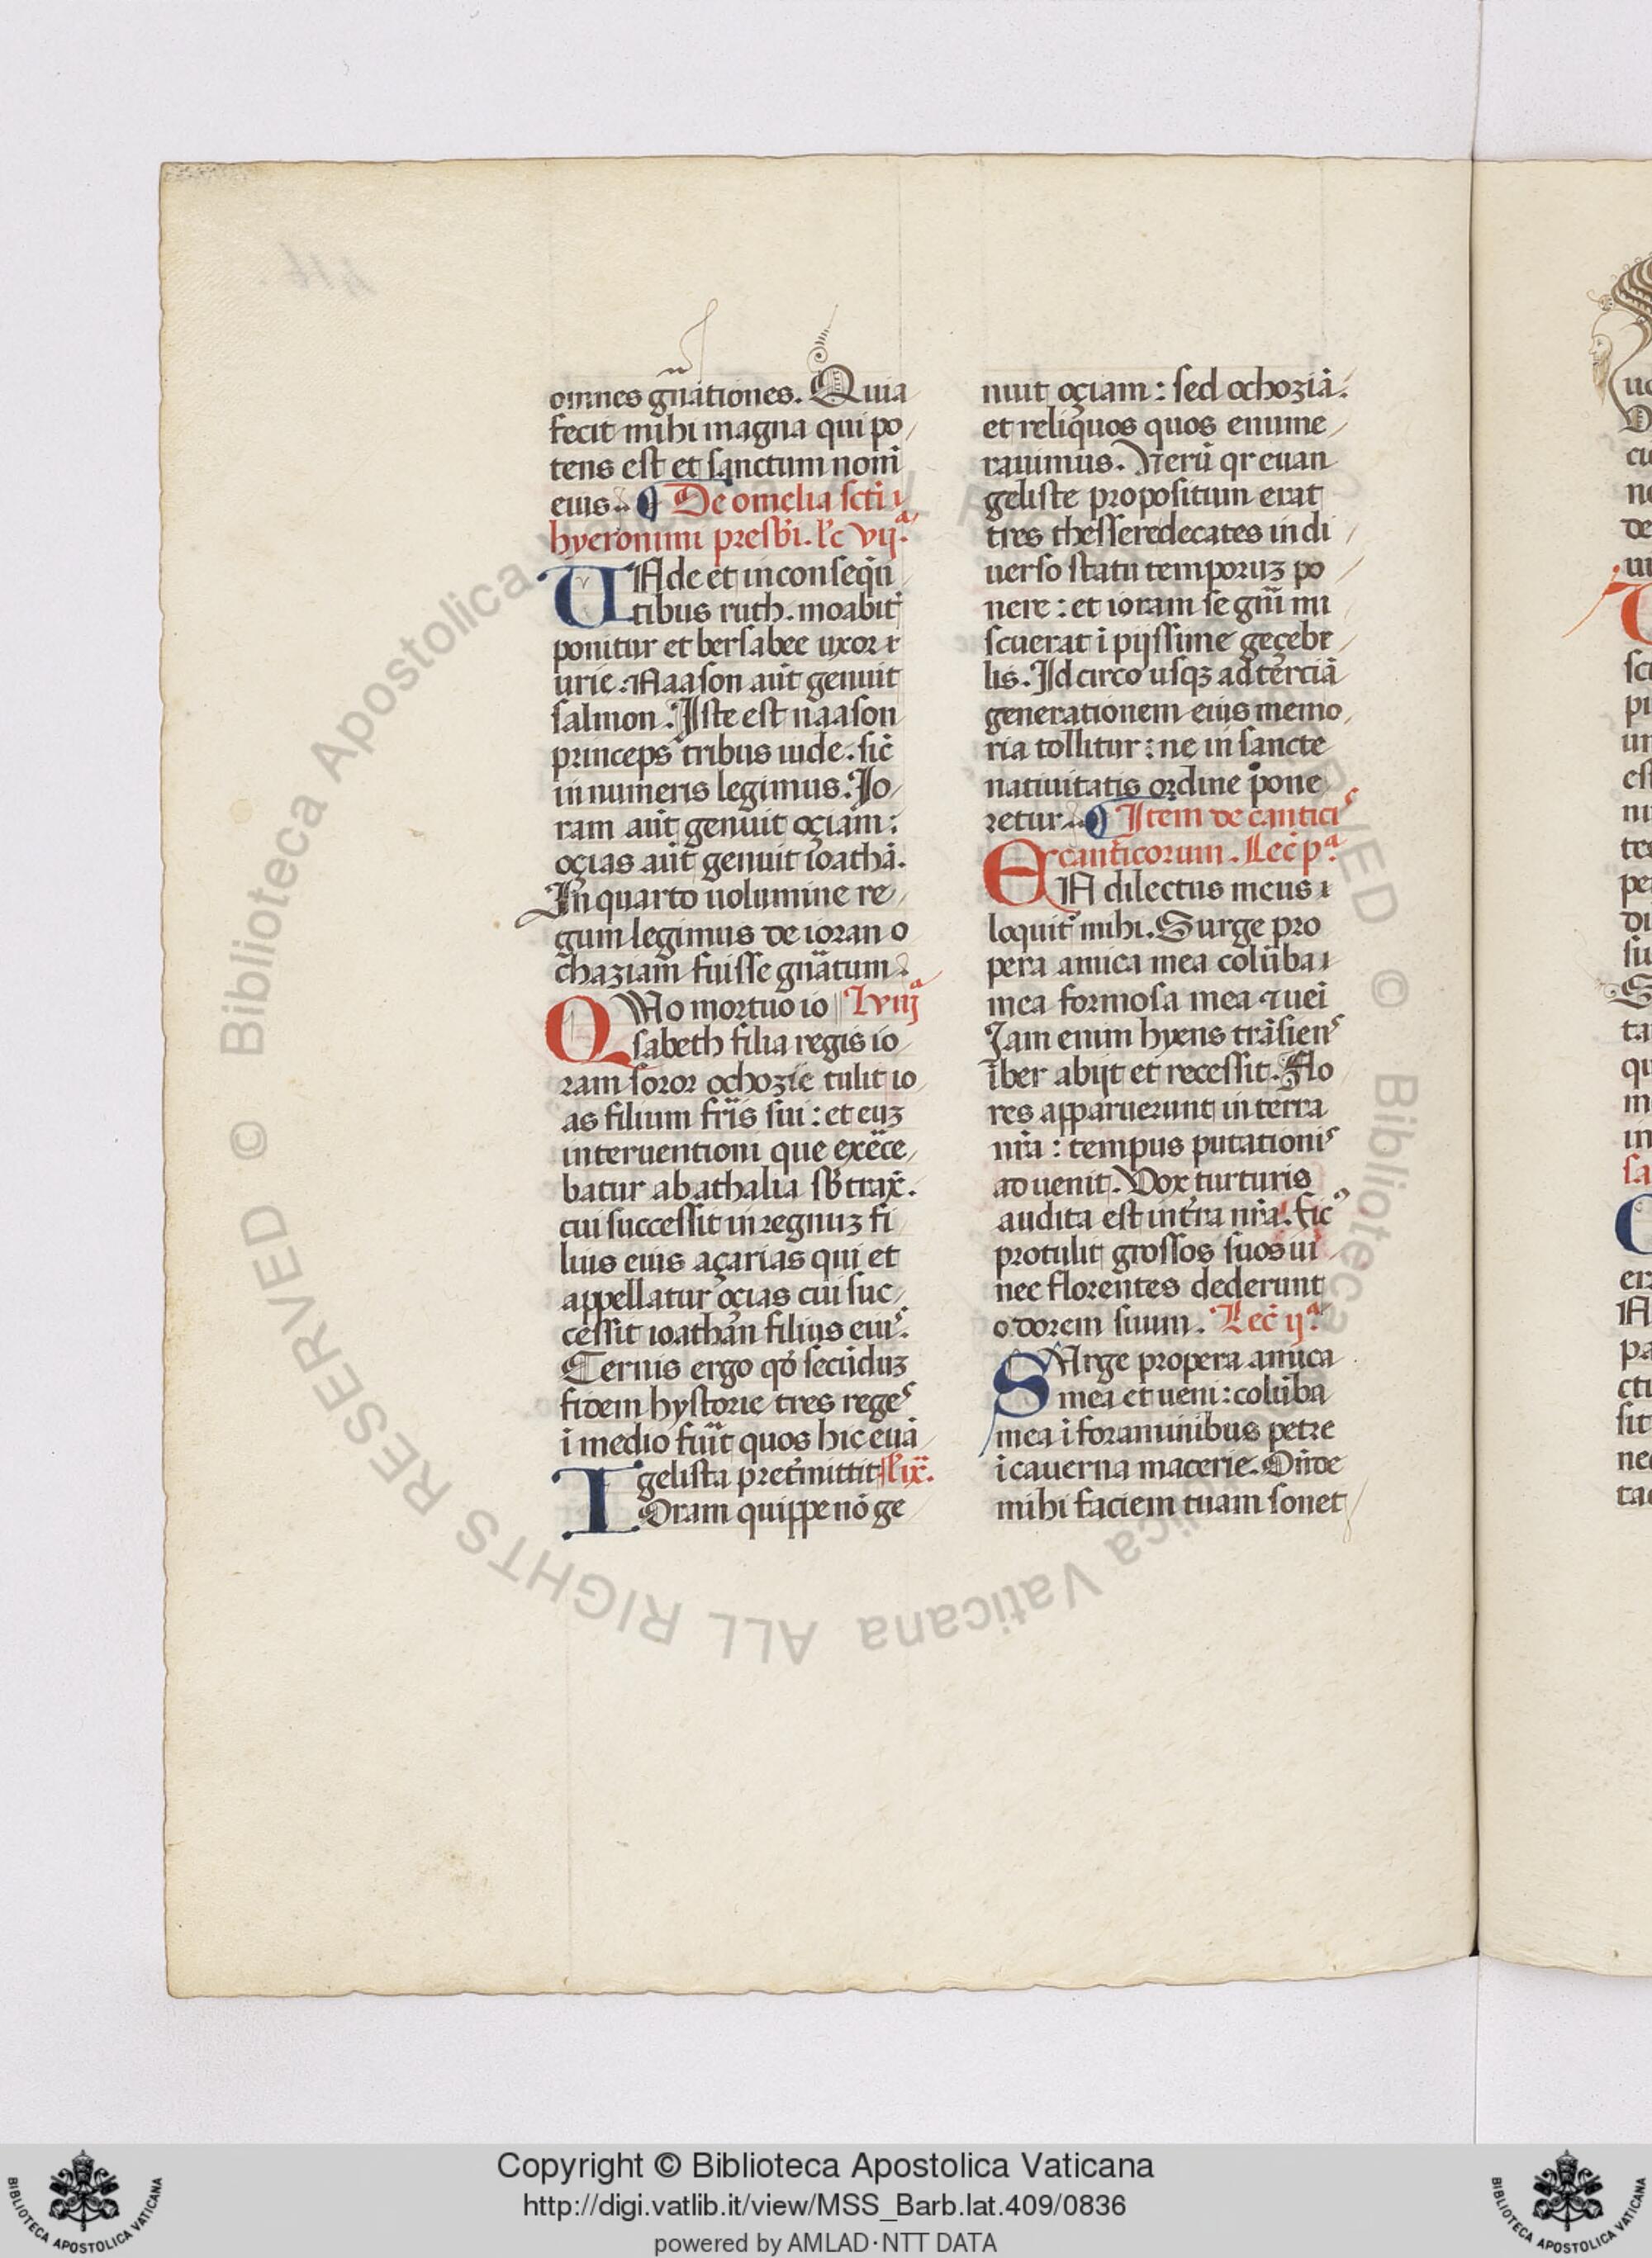 omnes gn̄ationes. Quia
fecit mihi magna qui po
tens est et sanctum nom̄
eius. De omelia scti
hyeronimi presbi. lc̄ vijᵃ.
UAde et in conseqn̄
tibus ruth. moabit̄
ponitur et bersabee uxor
urie. Naason aūt genuit
salmon. Iste est naason
princeps tribus iude. sic̄
in numeris legimus. Io
ram aūt genuit oçiam:
oçias aūt genuit ioathā.
In quarto uolumine re
gum legimus de ioran o
chaziam fuisse gn̄atum.
QUo mortuo io
sabeth filia regis io
ram soror ochozie tulit io
as filium fr̄is sui: et euʒ
interuentioni que exēce
batur ab athalia sb̄trax̄.
cui successit in regnuʒ fi
lius eius açarias qui et
appellatur oçias cui suc
cessit ioathan filius eius.
Ternis ergo qō secūduʒ
fidem hystorie tres reges
ī medio fūit quos hic euā
gelista pret̄mittit l̄ ix.
IOram quippe nō ge
nuit oçiam: sed ochoziā:
et reliquos quos enume
rauimus. Verū qr euan
geliste propositum erat
tres thesseredecates in di
uerso statu temporuʒ po
nere: et ioram se gn̄i mi
scuerat ī pijssime geçebe
lis. Idcirco usqʒ ad terciā
generationem eius memo
ria tollitur: ne in sancte
natiuitatis ordine pone
retur. Item de cantici
canticorum. Lec̄ pᵃ.
EN dilectus meus
loquit̄ mihi. Surge pro
pera amica mea colūba
mea formosa mea ⁊ uei
Iam enim hyens trāsiens
īber abijt et recessit. Flo
res apparuerunt in terra
nr̄a: tempus putationis
aduenit. Vox turturis
audita est in tr̄a nr̄a. fic⁹
protulit grossos suos ui
nee florentes dederunt
odorem suum. Lec̄ ijᵃ.
SUrge propera amica
mea et ueni: colūba
mea ī foraminibus petre
ī cauerna macerie. On̄de
mihi faciem tuam sonet
Copyright © Biblioteca Apostolica Vaticana
http://digi.vatlib.it/view/MSS_Barb.lat.409/0836
powered by AMLAD·NTT DATA
© Biblioteca Apostolica Vaticana ALL RIGHTS RESERVED
BIBLIOTECA APOSTOLICA VATICANA
BIBLIOTECA APOSTOLICA VATICANA